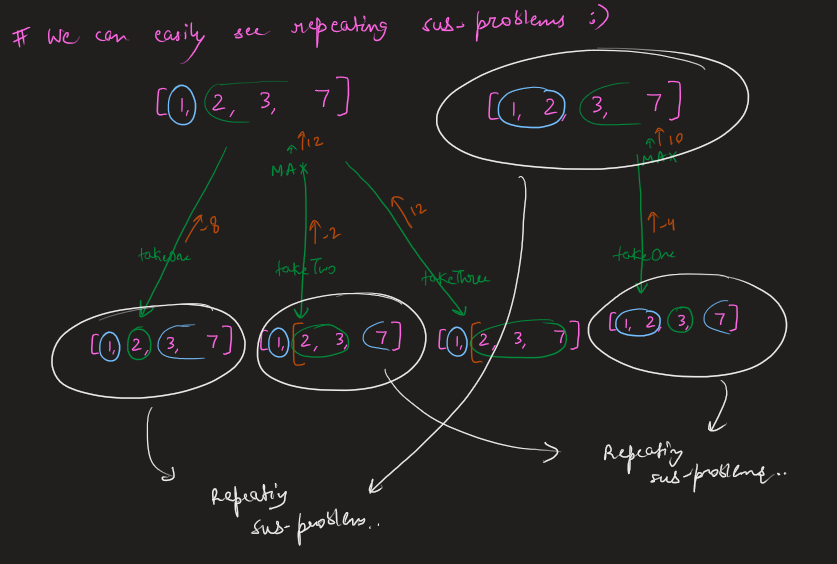 # We can easily see repeating sub-problems :)
[1, 2, 3, 7]
[1, 2, 3, 7]
12
MAX
10
MAX
-8
-2
12
-4
takeOne
takeTwo
takeThree
takeOne
[1, 2, 3, 7]
[1, [2, 3, 7]
[1, [2, 3, 7]
[1, 2, 3, 7]
Repeating
sub-problem..
Repeating
sub-problems..